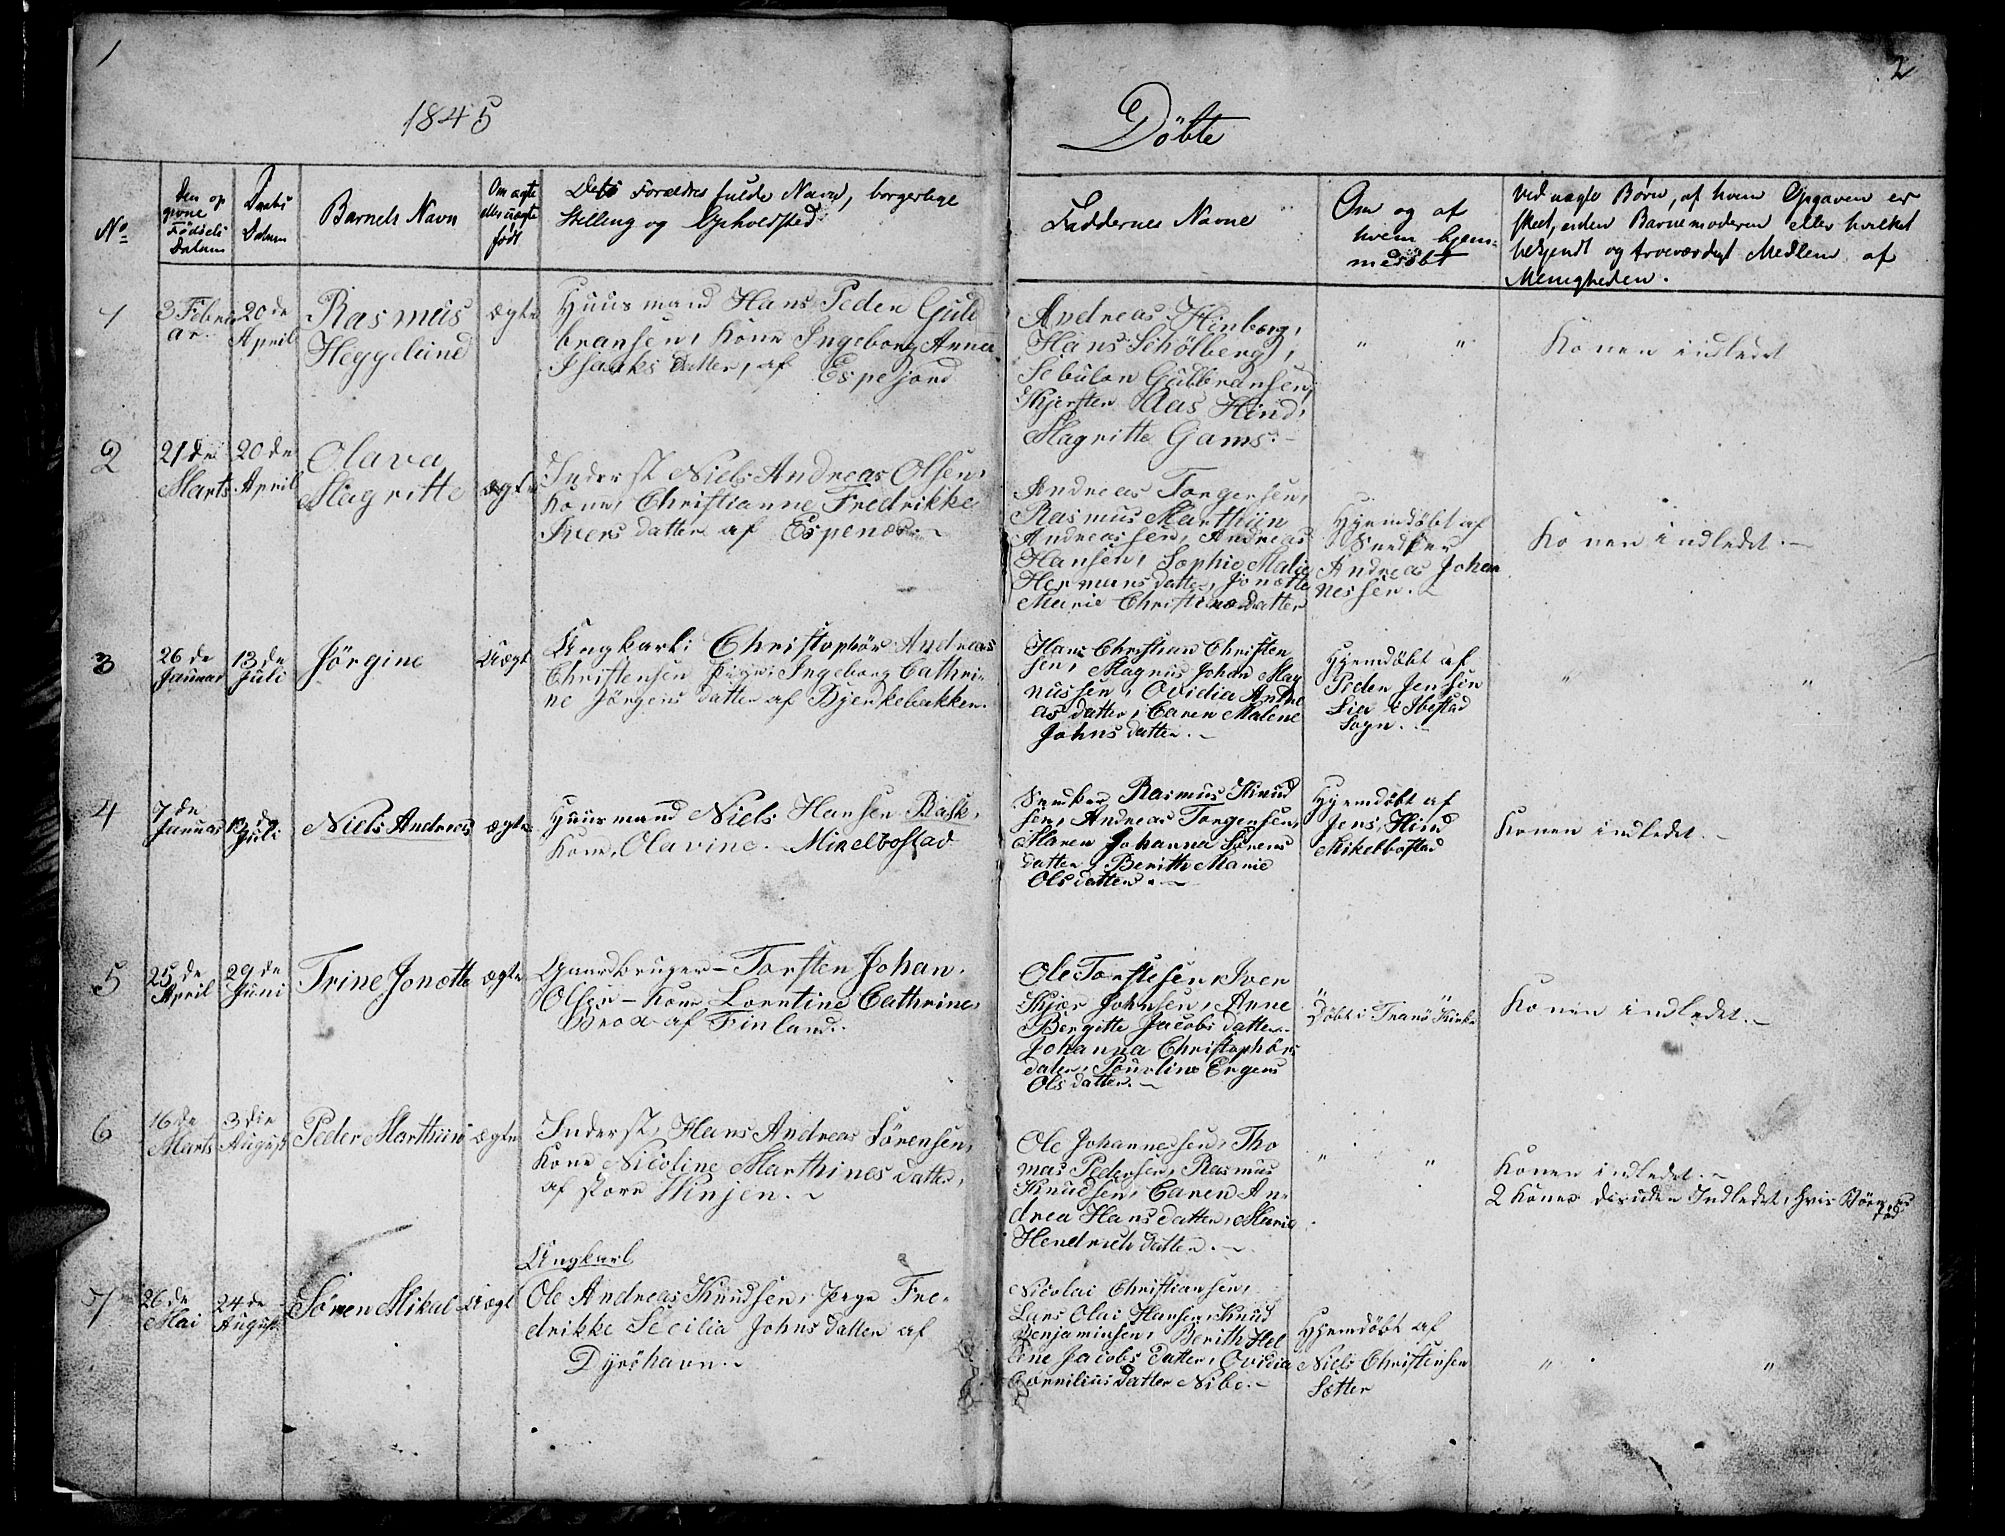 1
2
1845
Döbte
No
Den op
givne
Fødsels
Datum
Daabs
Datum
Barnets Navn
Om ægte
eller uægte
født
Dets Forældres fulde Navn, borgerlige
Stilling og Opholdsted
Faddernes Navne
Om og af
hvem hjem-
medöbt
Ved uægte Børn, af hvem Opgaven er
skeet, enten Barnemoderen eller hvilket
bekjendt og troværdigt Medlem af
Menigheden.
1
3 Febru
ar
20 de
April
Rasmus
Heggelund
ægte
Huusmand Hans Peder Guld
bransen, Kone Ingeborg Anna
Isaaks datter, af Espejord
Andreas Hinberg,
Hans Schølberg,
Sebulon Gulbransen,
Kjersten Aas Hind,
Magritte Gams.-
" "
Konen indledet
2
21 de
Marts
20 de
April
Olava
Magritte
ægte
Inderst Niels Andreas Olsen,
Kone, Christianne Fredrikke
Ivers datter af Espenæs
Andreas Torgersen,
Rasmus Marthiin
Andreassen, Andreas
Hansen, Sophie Malie
Hermans datter, Jonette
Marie Christians datter
Hjemdöbt af
Snedker
Andreas Johan
nessen.
Konen indledet.-
3
26 de
Januar
13 de
Juli
Jörgine
Uægt
Ungkarl: Christophör Andreas
Christensen Pige: Ingeborg Cathri-
ne Jörgens datter af Bjerkebakken.
Hans Christian Christen
sen, Magnus Johan Mag
nussen, Ovidia Andre
as datter, Caren Malene
Johns datter.-
Hjemdöbt af
Peder Jensen
Lia i Ibestad
Sogn.
" "
4
7 de
Januar
13 de
Juli
Niels Andreas
ægte
Huusmand Niels Hansen Bask,
Kone, Olavine.- Mikelbostad
Snedker Rasmus Knud
sen, Andreas Torgersen,
Maren Johanna Sörens
datter, Beritte Marie
Ols datter.-
Hjemdöbt af
Jens Hind
Mikelbostad
Konen indledet.-
5
25 de
April
29 de
Juni
Trine Jonette
ægte
Gaardbruger- Torsten Johan
Olsen- Kone Lorntine Cathrine
Brox af Finland.
Ole Torstesen, Iver
Kjær Johnsen, Anne
Bergitte Jacobs datter
Johanna Christophörs
datter, Pouline
Ols datter.-
Döbt i Tranö Kirke
Konen indledet.-
6
16 de
Marts
3 die
August
Peder Marthiin
ægte
Inderst, Hans Andreas Sörensen,
Kone Nicoline Marthines datter,
af store Vinjen.-
Ole Johannessen, Tho
mas Pedersen, Rasmus
Knudsen, Caren An-
drea Hans datter, Marie
Hendrich datter.-
" "
Konen indledet.-
2 Koner desuden Indledet, hvis Börn ere
död
7
26 de
Mai
24 de
August
Sören Mikal
Uægt
Ungkarl
Ole Andreas Knudsen, Pige Fre-
drikke Secilia Johns datter af
Dyröhavn.-
Nicolai Christiansen,
Lars Olai Hansen, Knud
Benjaminsen, Berith Hel
ene Jacobs datter, Ovidia
Cornilius datter Nibe.-
Hjemdöbt af
Niels Christensen
Sætter
" "